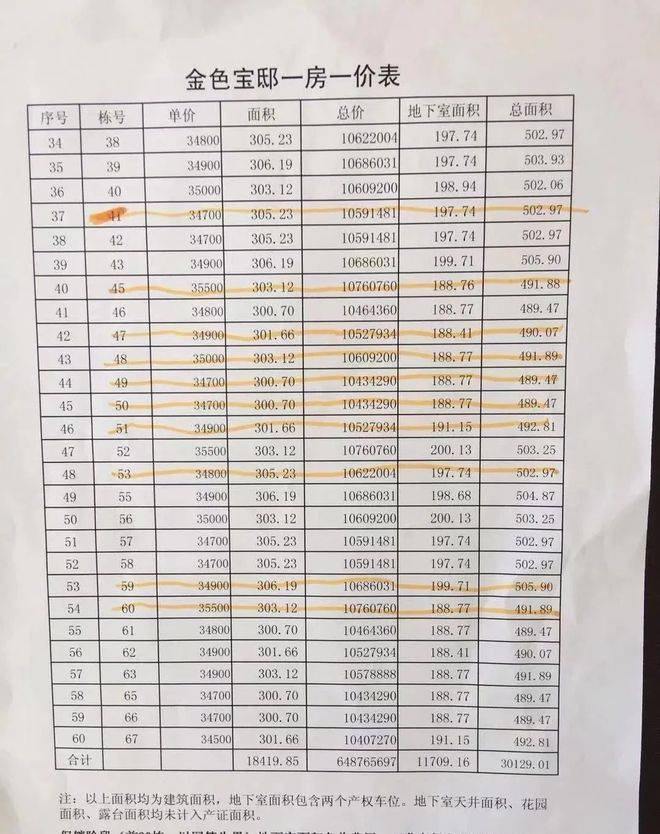 金色宝邸一房一价表
序号 栋号 单价 面积 总价 地下室面积 总面积
34 38 34800 305.23 10622004 197.74 502.97
35 39 34900 306.19 10686031 197.74 503.93
36 40 35000 303.12 10609200 198.94 502.06
37 41 34700 305.23 10591481 197.74 502.97
38 42 34700 305.23 10591481 197.74 502.97
39 43 34900 306.19 10686031 199.71 505.90
40 45 35500 303.12 10760760 188.76 491.88
41 46 34800 300.70 10464360 188.77 489.47
42 47 34900 301.66 10527934 188.41 490.07
43 48 35000 303.12 10609200 188.77 491.89
44 49 34700 300.70 10434290 188.77 489.47
45 50 34700 300.70 10434290 188.77 489.47
46 51 34900 301.66 10527934 191.15 492.81
47 52 35500 303.12 10760760 200.13 503.25
48 53 34800 305.23 10622004 197.74 502.97
49 55 34900 306.19 10686031 198.68 504.87
50 56 35000 303.12 10609200 200.13 503.25
51 57 34700 305.23 10591481 197.74 502.97
52 58 34700 305.23 10591481 197.74 502.97
53 59 34900 306.19 10686031 199.71 505.90
54 60 35500 303.12 10760760 188.77 491.89
55 61 34800 300.70 10464360 188.77 489.47
56 62 34900 301.66 10527934 188.41 490.07
57 63 34900 303.12 10578888 188.77 491.89
58 65 34700 300.70 10434290 188.77 489.47
59 66 34700 300.70 10434290 188.77 489.47
60 67 34500 301.66 10407270 191.15 492.81
合计 18419.85 648765697 11709.16 30129.01
注：以上面积均为建筑面积，地下室面积包含两个产权车位。地下室天井面积、花园
面积、露台面积均未计入产证面积。